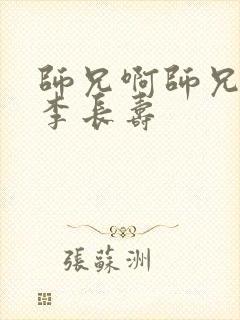 師兄啊師兄
李長壽
張蘇洲